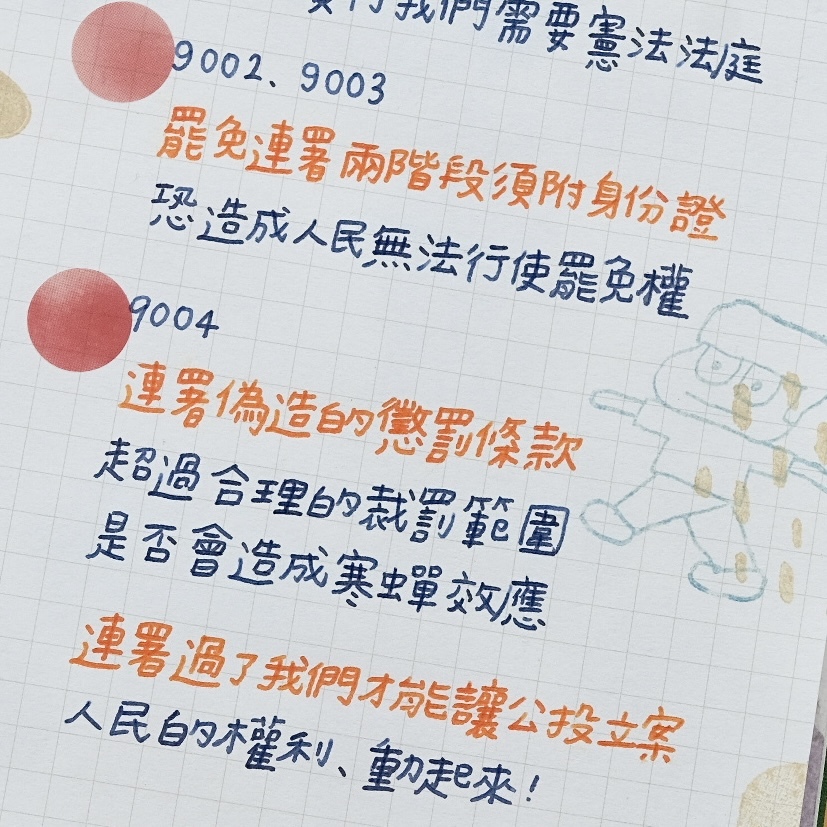 我們需要憲法法庭
9002、9003
罷免連署兩階段須附身份證
恐造成人民無法行使罷免權
9004
連署偽造的懲罰條款
超過合理的裁罰範圍
是否會造成寒蟬效應
連署過了我們才能讓公投立案
人民的權利、動起來！